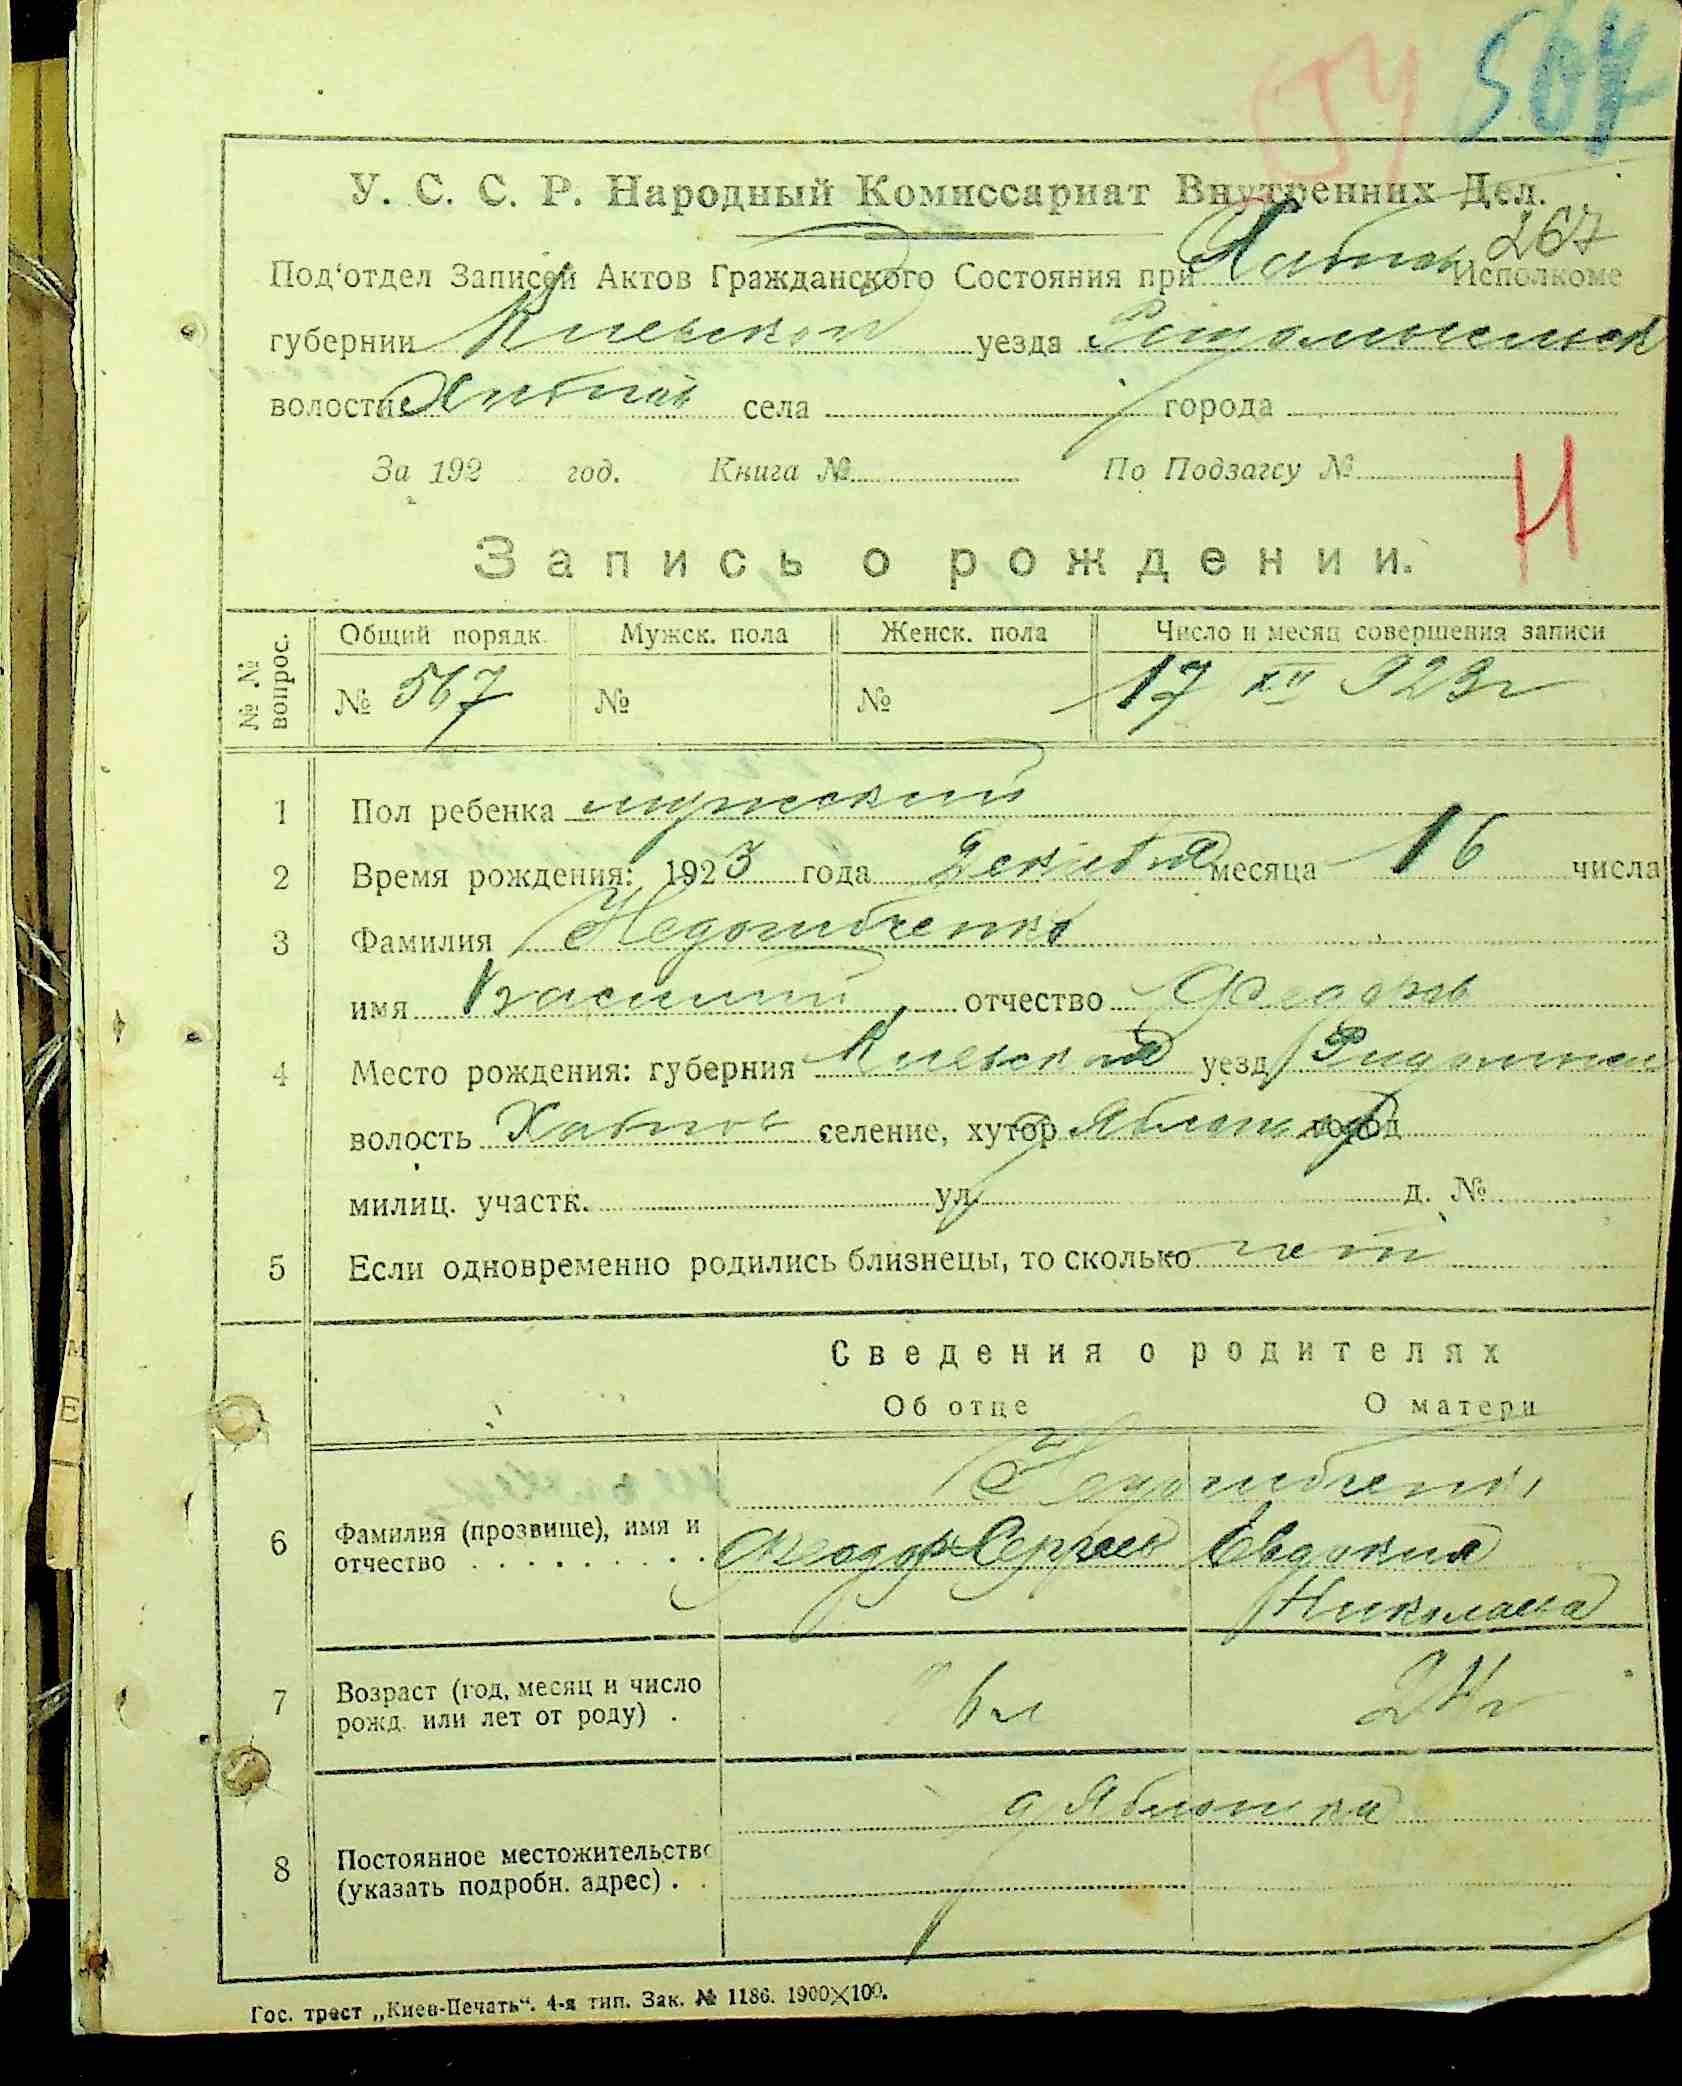 507
У. С. С. Р. Народный Комиссариат Внутренних Дел.
267
Под'отдел Записей Актов Гражданского Состояния при Хабном Исполкоме
губернии Киевской уезда
волости Хабное села города
За 192 год. Книга № По Подзагсу №
Н
Запись о рождении.
№ № вопрос. Общий порядк. Мужск. пола Женск. пола Число и месяц совершения записи
№ 567 № № 17 XII 923 г
1 Пол ребенка мужской
2 Время рождения: 1923 года Декабря месяца 16 числа
3 Фамилия Недогибченко
имя Василий отчество Феодоров
4 Место рождения: губерния Киевской уезд
волость Хабнов селение, хутор Яблонка город
милиц. участк. ул. д. №
5 Если одновременно родились близнецы, то сколько нет
Сведения о родителях
Об отце О матери
Недогибченко
6 Фамилия (прозвище), имя и отчество Феодор Сергеев Евдокия
Николаева
7 Возраст (год, месяц и число рожд. или лет от роду) 24 г
д Яблонка
8 Постоянное местожительство (указать подробн. адрес)
Гос. трест „Киев-Печать“. 4-я тип. Зак. № 1186. 1900×100.